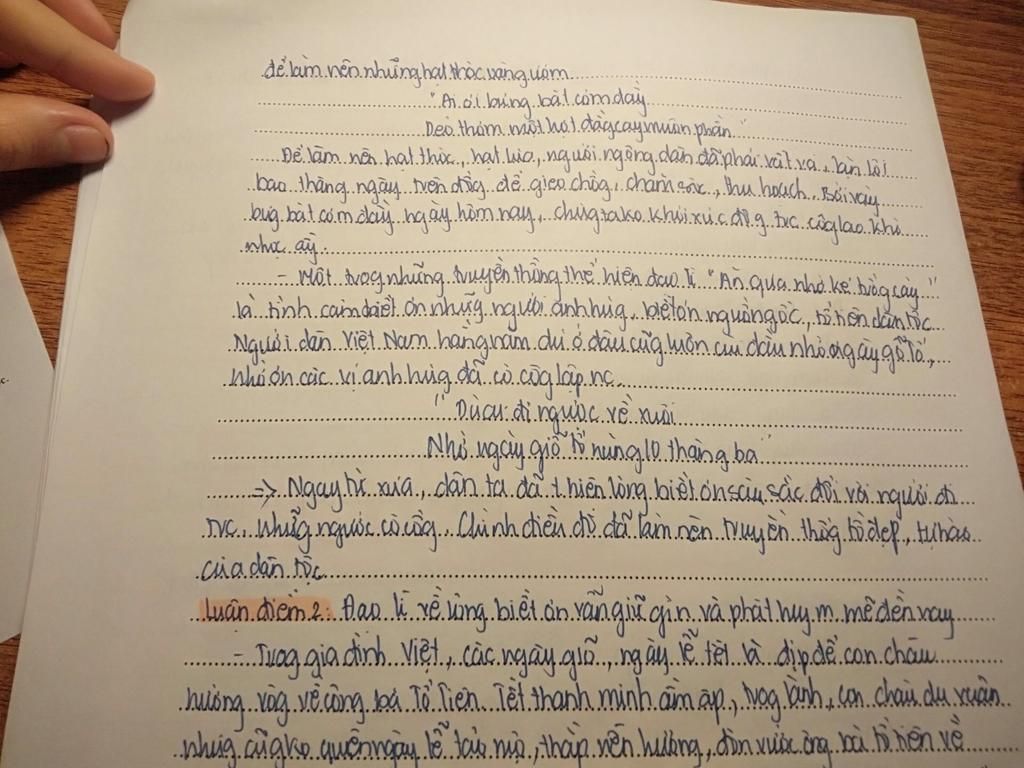 để làm nên những hạt thóc vàng ươm
"Ai ơi bưng bát cơm đầy
Dẻo thơm một hạt đắng cay muôn phần"
Để làm nên hạt thóc, hạt lúa, người nông dân đã phải vất vả, lặn lội
bao tháng ngày trên đồg để gieo trồg, chăm sóc, thu hoạch. Bởi vậy
bưg bát cơm đầy ngày hôm nay, chúg ta ko khỏi xúc độg trc côg lao khó
nhọc ấy.
- Một trog những truyền thống thể hiện đạo lí "Ăn quả nhớ kẻ trồg cây"
là tình cảm biết ơn nhữg người anh hùg, biết ơn nguồn gốc, tổ tiên dân tộc
Người dân Việt Nam hàng năm dù ở đâu cũg luôn cúi đầu nhớ ngày giỗ tổ,
nhớ ơn các vị anh hùg đã có côg lập nc.
"Dù ai đi ngược về xuôi
Nhớ ngày giỗ tổ mùng 10 tháng ba"
=> Ngay từ xưa, dân ta đã t hiện lòng biết ơn sâu sắc đối với người đi
trc, nhữg người có côg. Chính điều đó đã làm nên truyền thốg tốt đẹp, tự hào
của dân tộc
Luận điểm 2: Đạo lí về lòng biết ơn vẫn giữ gìn và phát huy m. mẽ đến nay
- Trog gia đình Việt, các ngày giỗ, ngày lễ tết là dịp để con cháu
hướng vôg về công bà Tổ Tiên. Tết thanh minh ấm áp, trog lành, con cháu du xuân
nhưg cũg ko quên ngày lễ tảo mộ, thắp nén hương, đón rước ông bà tổ tiên về